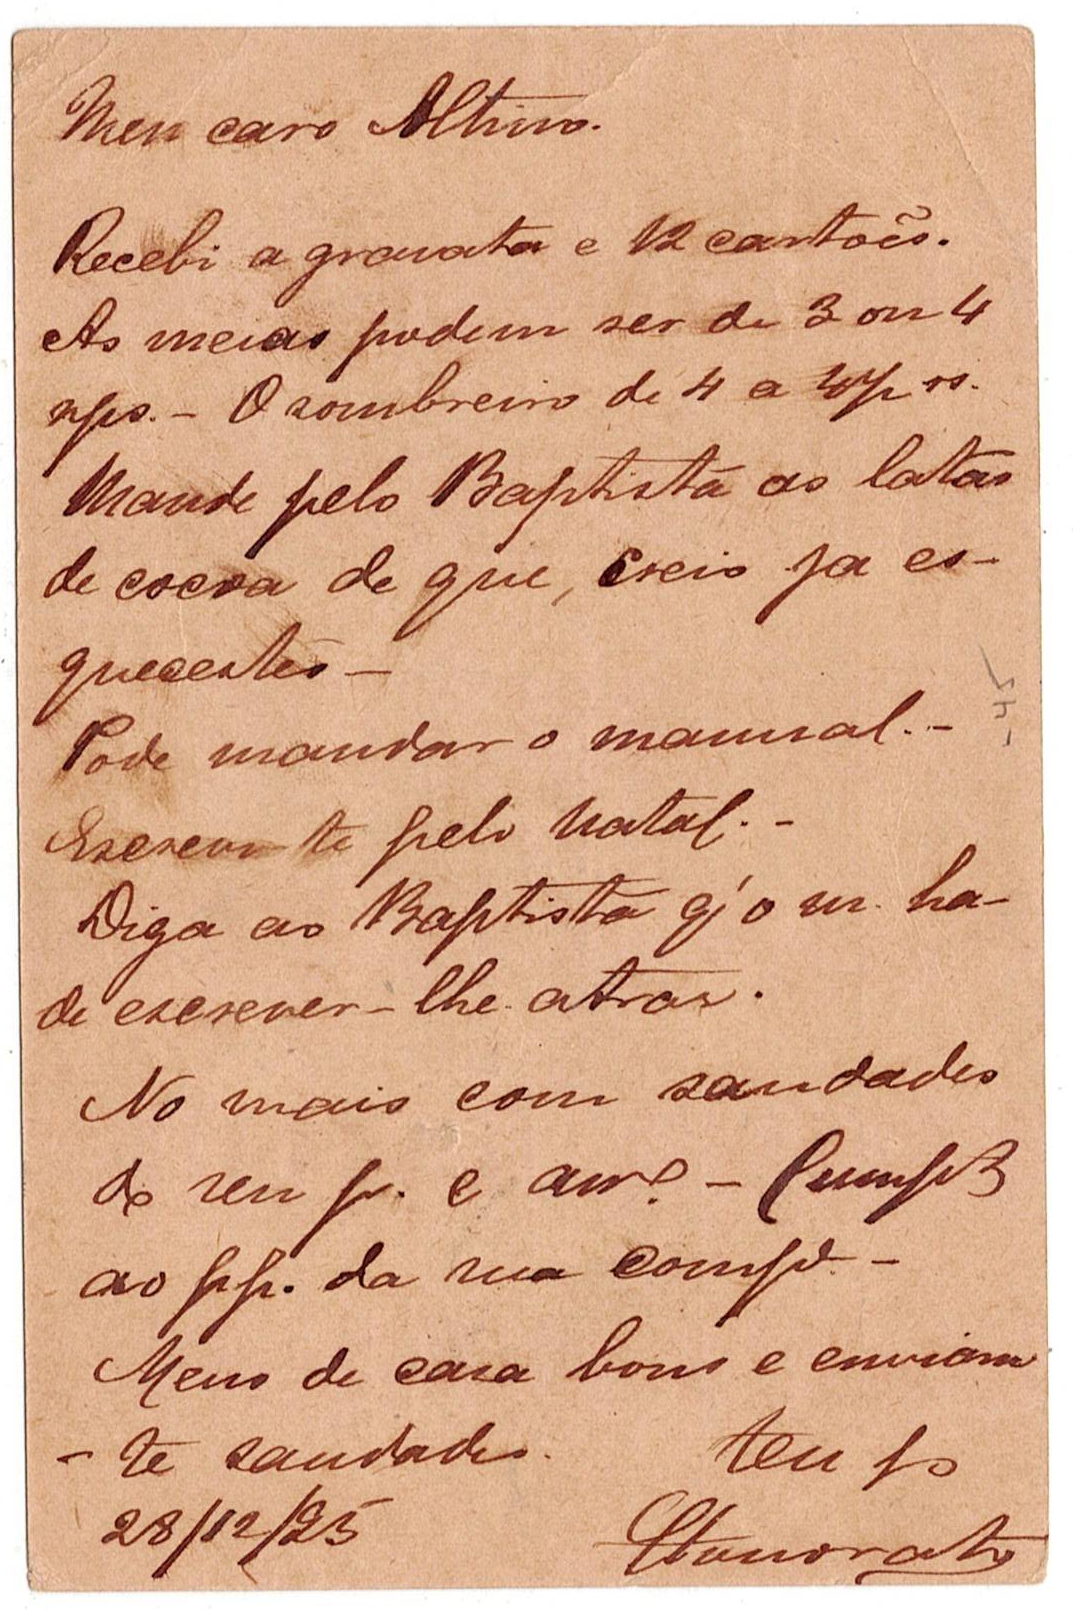 Meu caro Altino.
Recebi a gravata e 12 cartoẽs.
As meias podem ser de 3 ou 4
rps. - O sombreiro de 4 a
Mande pelo Baptista as latas
de cocoa de que, creio ja es-
quecestes -
Pode mandar o manual. -
Escrevu te pelo Natal. -
Diga ao Baptista q' o m. ha-
de escrever-lhe atraz.
No mais com saudades
do seu pr. e amº. -
ao pp. da rua
Meus de casa bons e enviam
- te saudades. teu
28/12/25 Honorato